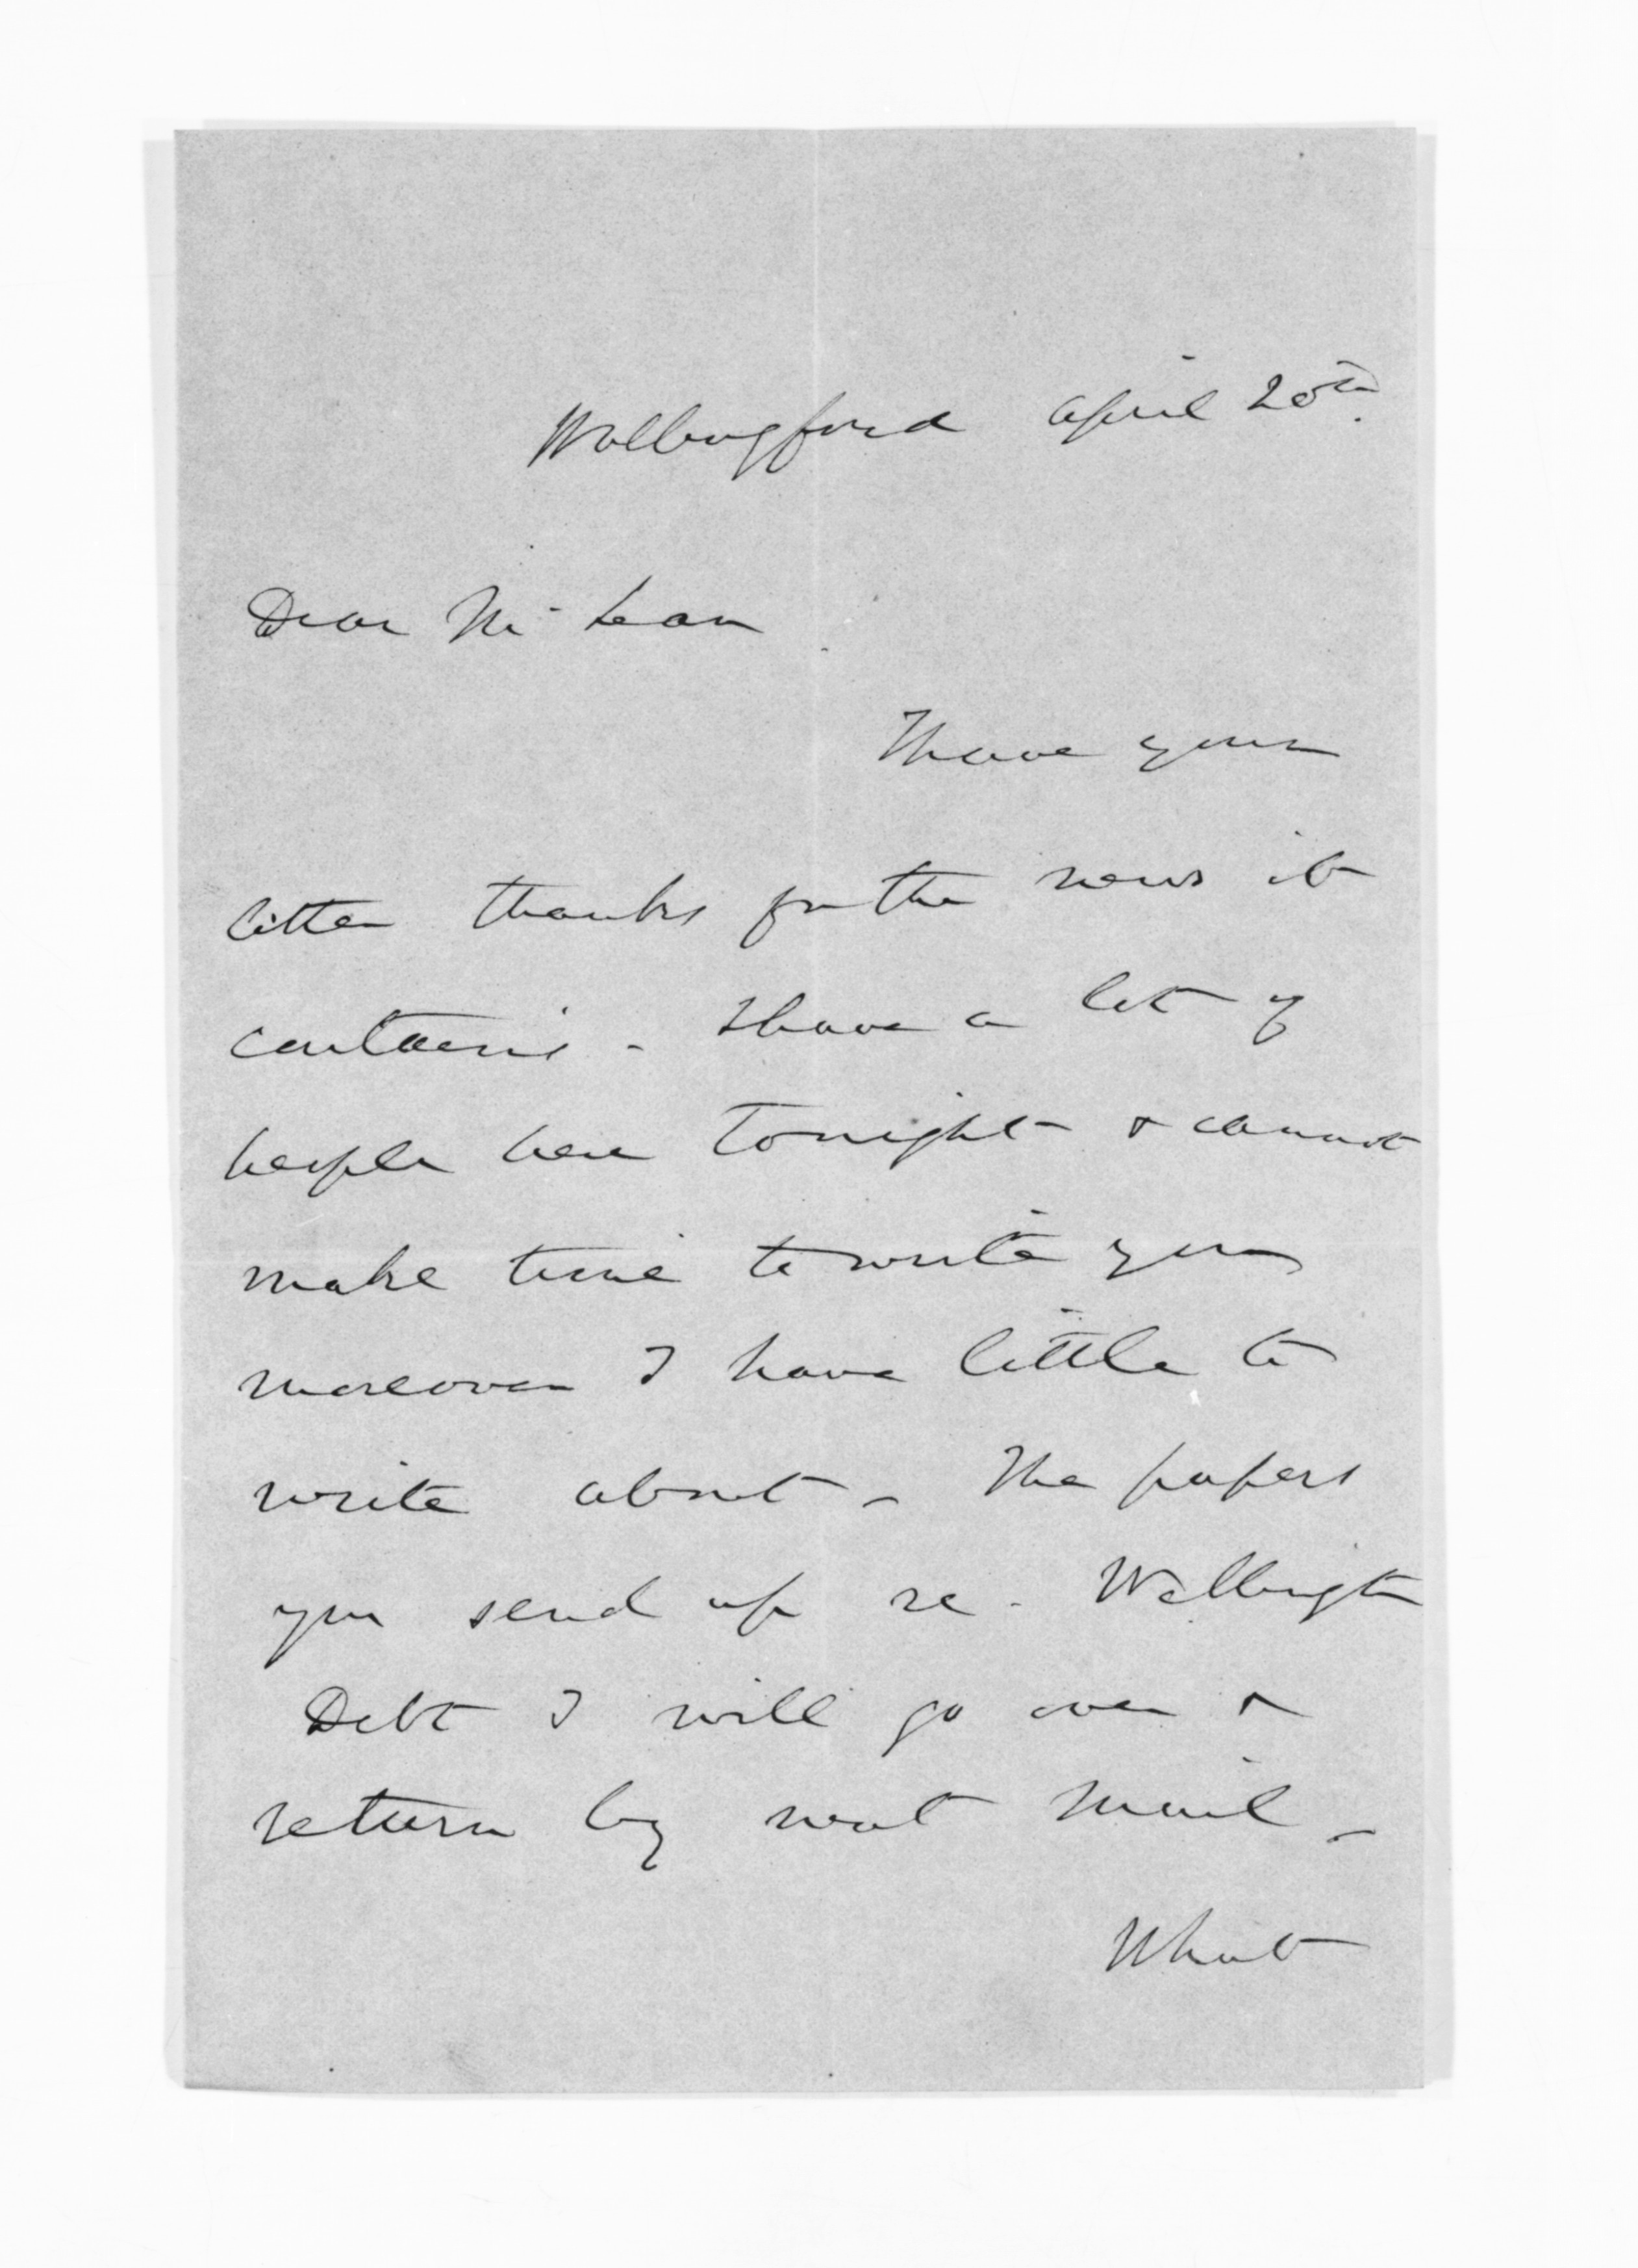 Wallingford April 20th.
Dear McLean
I have your
letter thanks for the news it
contains - I have a lot of
people here tonight & cannot
make time to write you
moreover I have little to
write about - The papers
you send up re - Wellington
Debt I will go over &
return by next mail -
What